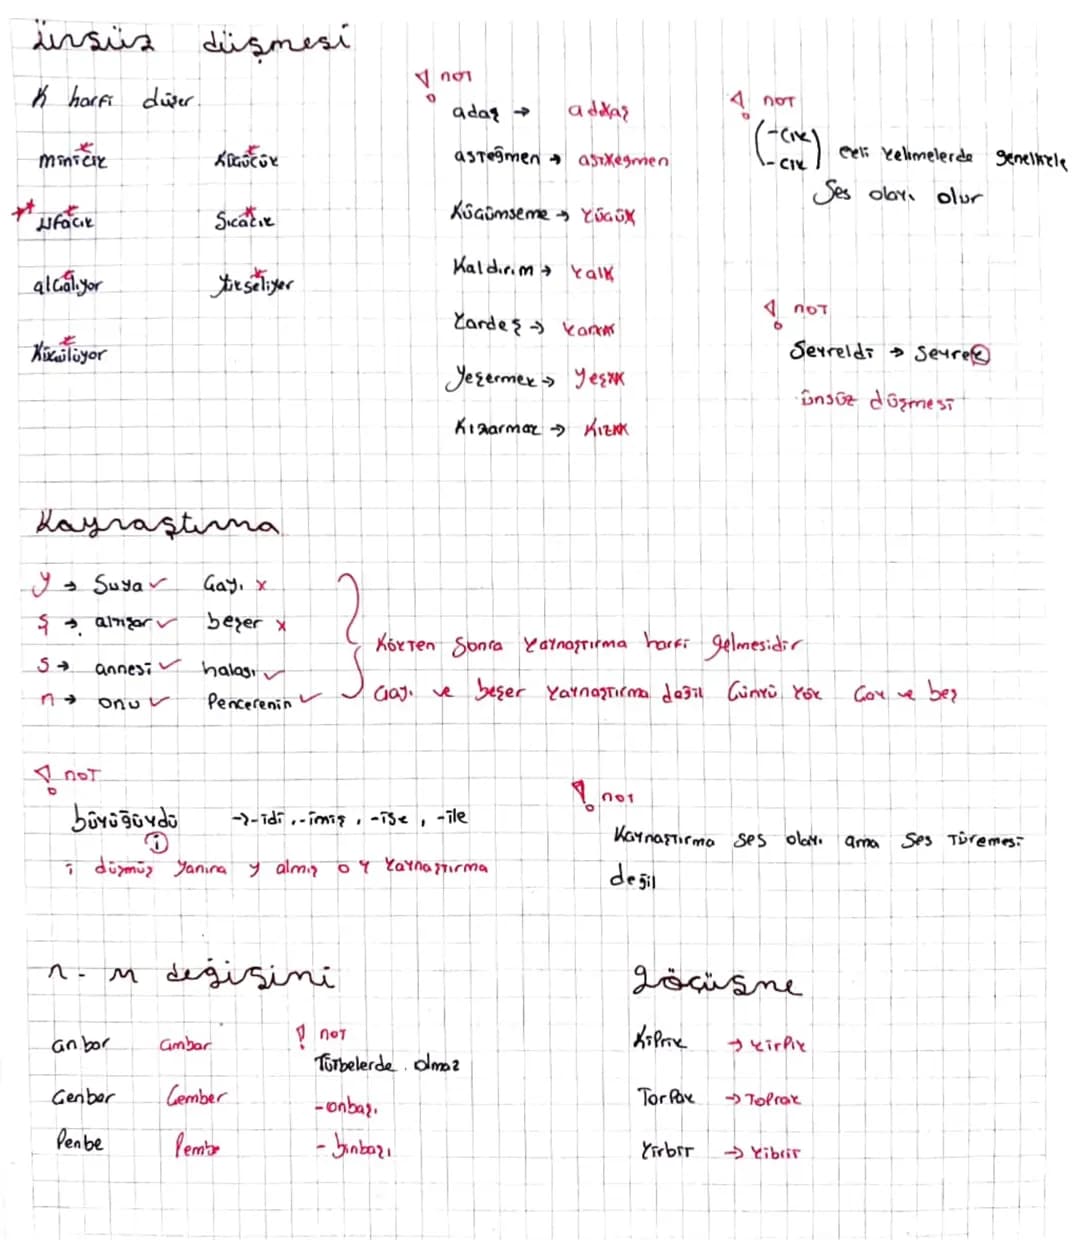 ünsüz düşmesi
K harfi düşer.
minicik
k
Küçücük
k
ufacık
k
Sıcacık
k
alçalıyor
k
yükseliyor
k
Küçülüyor
k
! not
adaş → addaş
asteğmen → astkeğmen
Küçümseme → küçük
Kaldırım → kalk
kardeş →
yeşermek → yeşik
Kızarmak → Kızık
! not
(-cik
-cık) ekli kelimelerde genellikle
Ses olayı olur
! not
Seyreldi → Seyrek
ünsüz düşmesi
Kaynaştırma
y → Suya ✓ Çayı x
ş → altışar ✓ beşer x
s → annesi ✓ halası ✓
n → onu ✓ Pencerenin ✓
Kökten Sonra kaynaştırma harfi gelmesidir
Çayı ve beşer kaynaştırma değil Çünkü kök Çay ve beş
! not
büyüğüydü → -idi, -imiş, -ise, -ile
i
i düşmüş yanına y almış o y kaynaştırma
! not
Kaynaştırma ses olayı ama Ses Türemesi
değil
n - m değişimi
anbar ambar
Çenber Çember
Penbe Pembe
! not
Türbelerde olmaz
- onbaşı
- binbaşı
göçüşme
Kiprik → kirpik
Torpak → Toprak
kirbit → kibrit